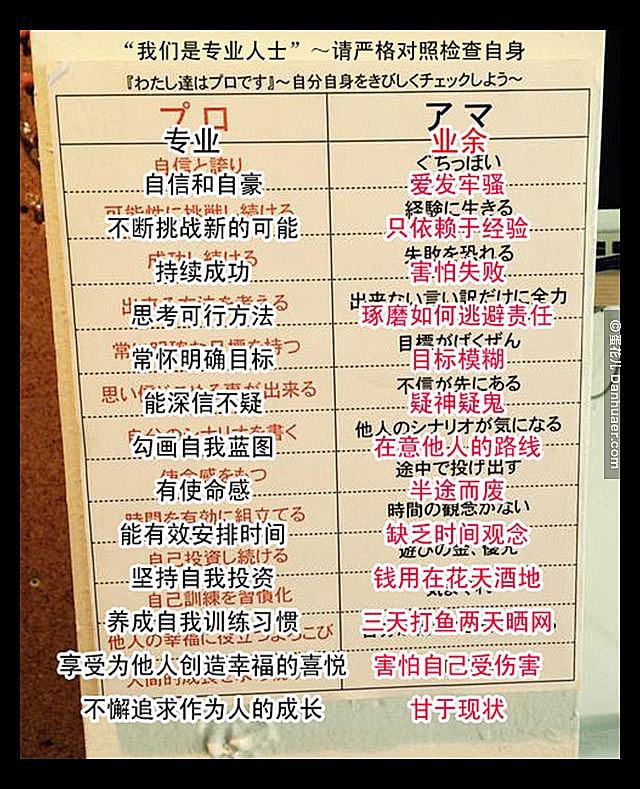 “我们是专业人士”～请严格对照检查自身
『わたし達はプロです』～自分自身をきびしくチェックしよう～
プロ アマ
专业 业余
自信と誇り ぐちっぽい
自信和自豪 爱发牢骚
可能性に挑戦し続ける 経験に生きる
不断挑战新的可能 只依赖于经验
成功し続ける 失敗を恐れる
持续成功 害怕失败
出来る方法を考える 出来ない言い訳だけに全力
思考可行方法 琢磨如何逃避责任
常に明確な目標を持つ 目標がばくぜん
常怀明确目标 目标模糊
出来る 不信が先にある
能深信不疑 疑神疑鬼
自分のシナリオを書く 他人のシナリオが気になる
勾画自我蓝图 在意他人的路线
使命感をもつ 途中で投げ出す
有使命感 半途而废
時間を有効に組立てる 時間の観念がない
能有效安排时间 缺乏时间观念
自己投資し続ける 遊びの金、優先
坚持自我投资 钱用在花天酒地
自己訓練を習慣化
养成自我训练习惯 三天打鱼两天晒网
他人の幸福に役立つよろこび
享受为他人创造幸福的喜悦 害怕自己受伤害
人間的成長を
不懈追求作为人的成长 甘于现状
@蛋花儿 Danhuaer.com